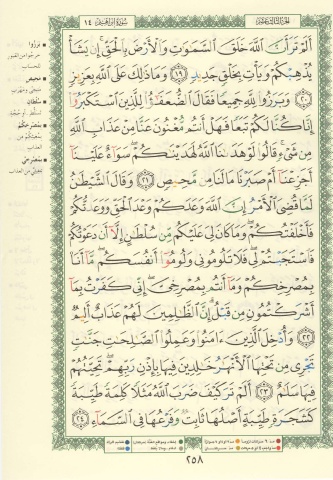 الجزء الثالث عشر
سورة ابراهيم ١٤
أَلَمْ تَرَ أَنَّ ٱللَّهَ خَلَقَ ٱلسَّمَٰوَٰتِ وَٱلْأَرْضَ بِٱلْحَقِّ إِن يَشَأْ
يُذْهِبْكُمْ وَيَأْتِ بِخَلْقٍ جَدِيدٍ ١٩ وَمَا ذَٰلِكَ عَلَى ٱللَّهِ بِعَزِيزٍ
٢٠ وَبَرَزُوا۟ لِلَّهِ جَمِيعًا فَقَالَ ٱلضُّعَفَٰٓؤُا۟ لِلَّذِينَ ٱسْتَكْبَرُوٓا۟
إِنَّا كُنَّا لَكُمْ تَبَعًا فَهَلْ أَنتُم مُّغْنُونَ عَنَّا مِنْ عَذَابِ ٱللَّهِ
مِن شَىْءٍ قَالُوا۟ لَوْ هَدَىٰنَا ٱللَّهُ لَهَدَيْنَٰكُمْ سَوَآءٌ عَلَيْنَآ
أَجَزِعْنَآ أَمْ صَبَرْنَا مَا لَنَا مِن مَّحِيصٍ ٢١ وَقَالَ ٱلشَّيْطَٰنُ
لَمَّا قُضِىَ ٱلْأَمْرُ إِنَّ ٱللَّهَ وَعَدَكُمْ وَعْدَ ٱلْحَقِّ وَوَعَدتُّكُمْ
فَأَخْلَفْتُكُمْ وَمَا كَانَ لِىَ عَلَيْكُم مِّن سُلْطَٰنٍ إِلَّآ أَن دَعَوْتُكُمْ
فَٱسْتَجَبْتُمْ لِى فَلَا تَلُومُونِى وَلُومُوٓا۟ أَنفُسَكُم مَّآ أَنَا۠
بِمُصْرِخِكُمْ وَمَآ أَنتُم بِمُصْرِخِىَّ إِنِّى كَفَرْتُ بِمَآ
أَشْرَكْتُمُونِ مِن قَبْلُ إِنَّ ٱلظَّٰلِمِينَ لَهُمْ عَذَابٌ أَلِيمٌ
٢٢ وَأُدْخِلَ ٱلَّذِينَ ءَامَنُوا۟ وَعَمِلُوا۟ ٱلصَّٰلِحَٰتِ جَنَّٰتٍ
تَجْرِى مِن تَحْتِهَا ٱلْأَنْهَٰرُ خَٰلِدِينَ فِيهَا بِإِذْنِ رَبِّهِمْ تَحِيَّتُهُمْ
فِيهَا سَلَٰمٌ ٢٣ أَلَمْ تَرَ كَيْفَ ضَرَبَ ٱللَّهُ مَثَلًا كَلِمَةً طَيِّبَةً
كَشَجَرَةٍ طَيِّبَةٍ أَصْلُهَا ثَابِتٌ وَفَرْعُهَا فِى ٱلسَّمَآءِ ٢٤
برزوا
خرجوا من القبور
للحساب
محيص
منجى ومهرب
سلطان
تسلط أو حجة
بمصرخكم
بمغيثكم من
العذاب
بمصرخي
بمغيثي من العذاب
٢٥٨